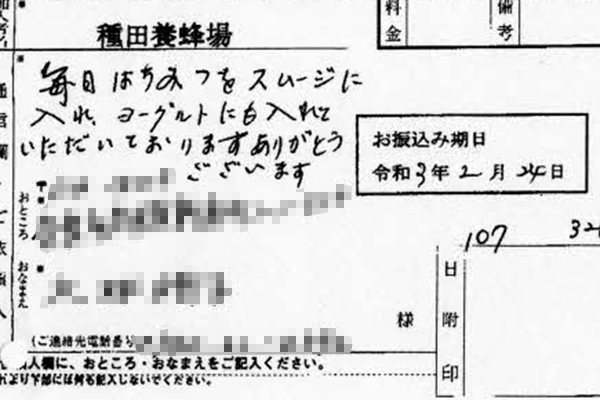 料金
備考
種田養蜂場
毎日はちみつをスムージに
入れ、ヨーグルトにも入れて
いただいております ありがとう
ございます
お振込み期日
令和3年2月24日
通信欄
おところ
おなまえ
107
様
日附印
(ご連絡先電話番号
人欄に、おところ・おなまえをご記入ください。
れより下部には何も記入しないでください。